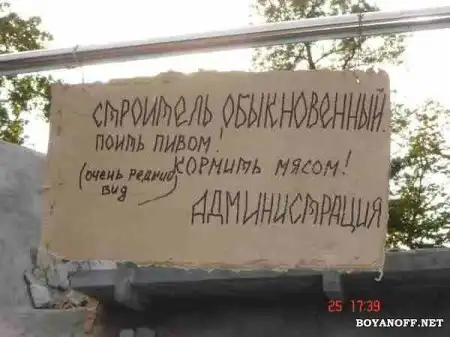 СТРОИТЕЛЬ ОБЫКНОВЕННЫЙ.
ПОИТЬ ПИВОМ!
(ОЧЕНЬ РЕДКИЙ ВИД) КОРМИТЬ МЯСОМ!
АДМИНИСТРАЦИЯ
25 17:39
BOYANOFF.NET